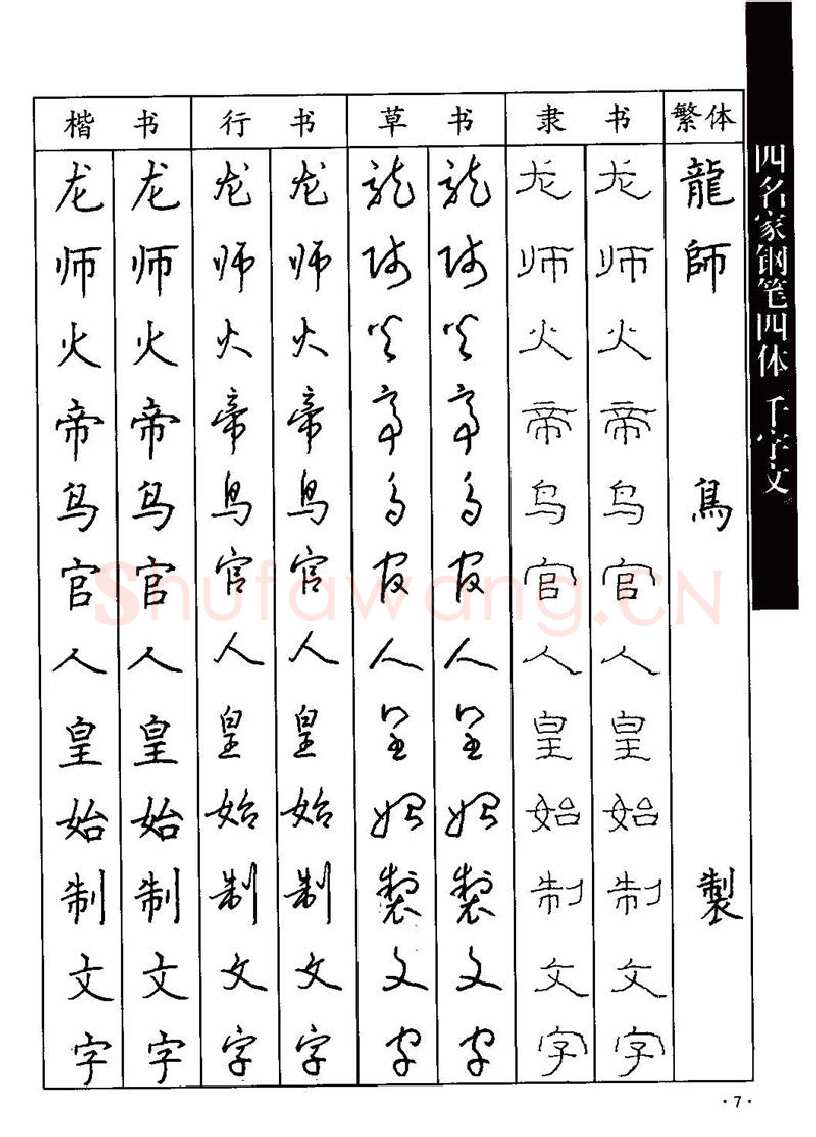 楷书 行书 草书 隶书 繁体
龙 龙 龙 龙 龍 龍 龙 龙 龍
师 师 师 师 师 师 师 师 師
火 火 火 火 火 火 火 火
帝 帝 帝 帝 帝 帝 帝 帝
鸟 鸟 鸟 鸟 鸟 鸟 鸟 鸟 鳥
官 官 官 官 官 官 官 官
人 人 人 人 人 人 人 人
皇 皇 皇 皇 皇 皇 皇 皇
始 始 始 始 始 始 始 始
制 制 制 制 製 製 制 制 製
文 文 文 文 文 文 文 文
字 字 字 字 字 字 字 字
四名家钢笔四体 千字文
Shufawang.CN
·7·